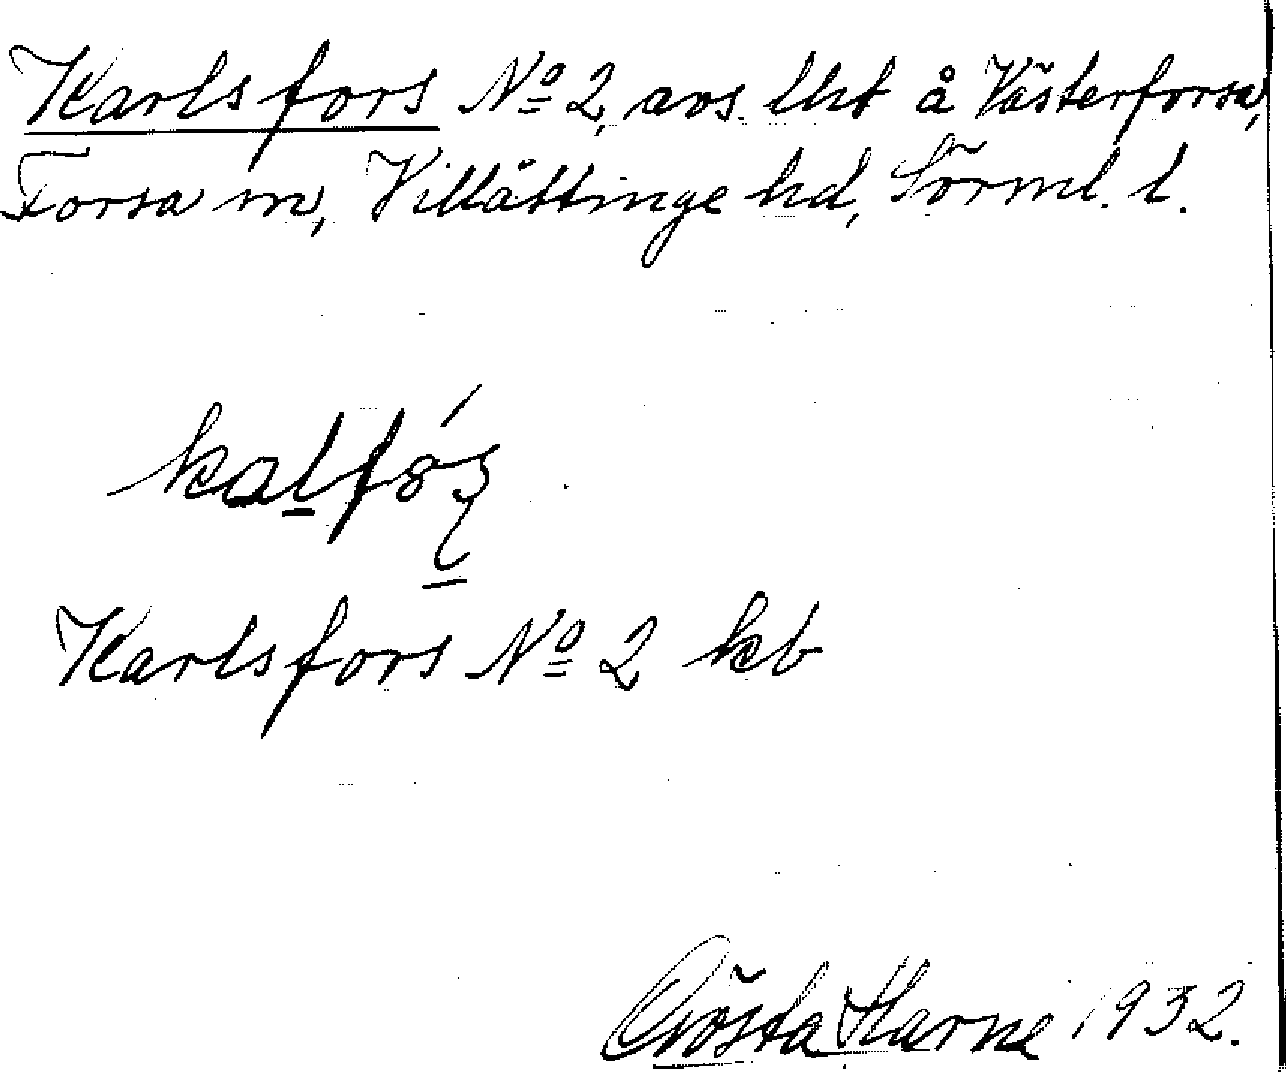 Karlsfors Nº 2, avs. lht å Västerforsa,
Forsa sn, Villåttinge hd, Sörml. l.
Karlsfors Nº 2 kb
Gösta Karne 1932.